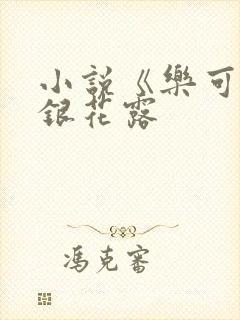 小說《樂可
銀花露
馮克審